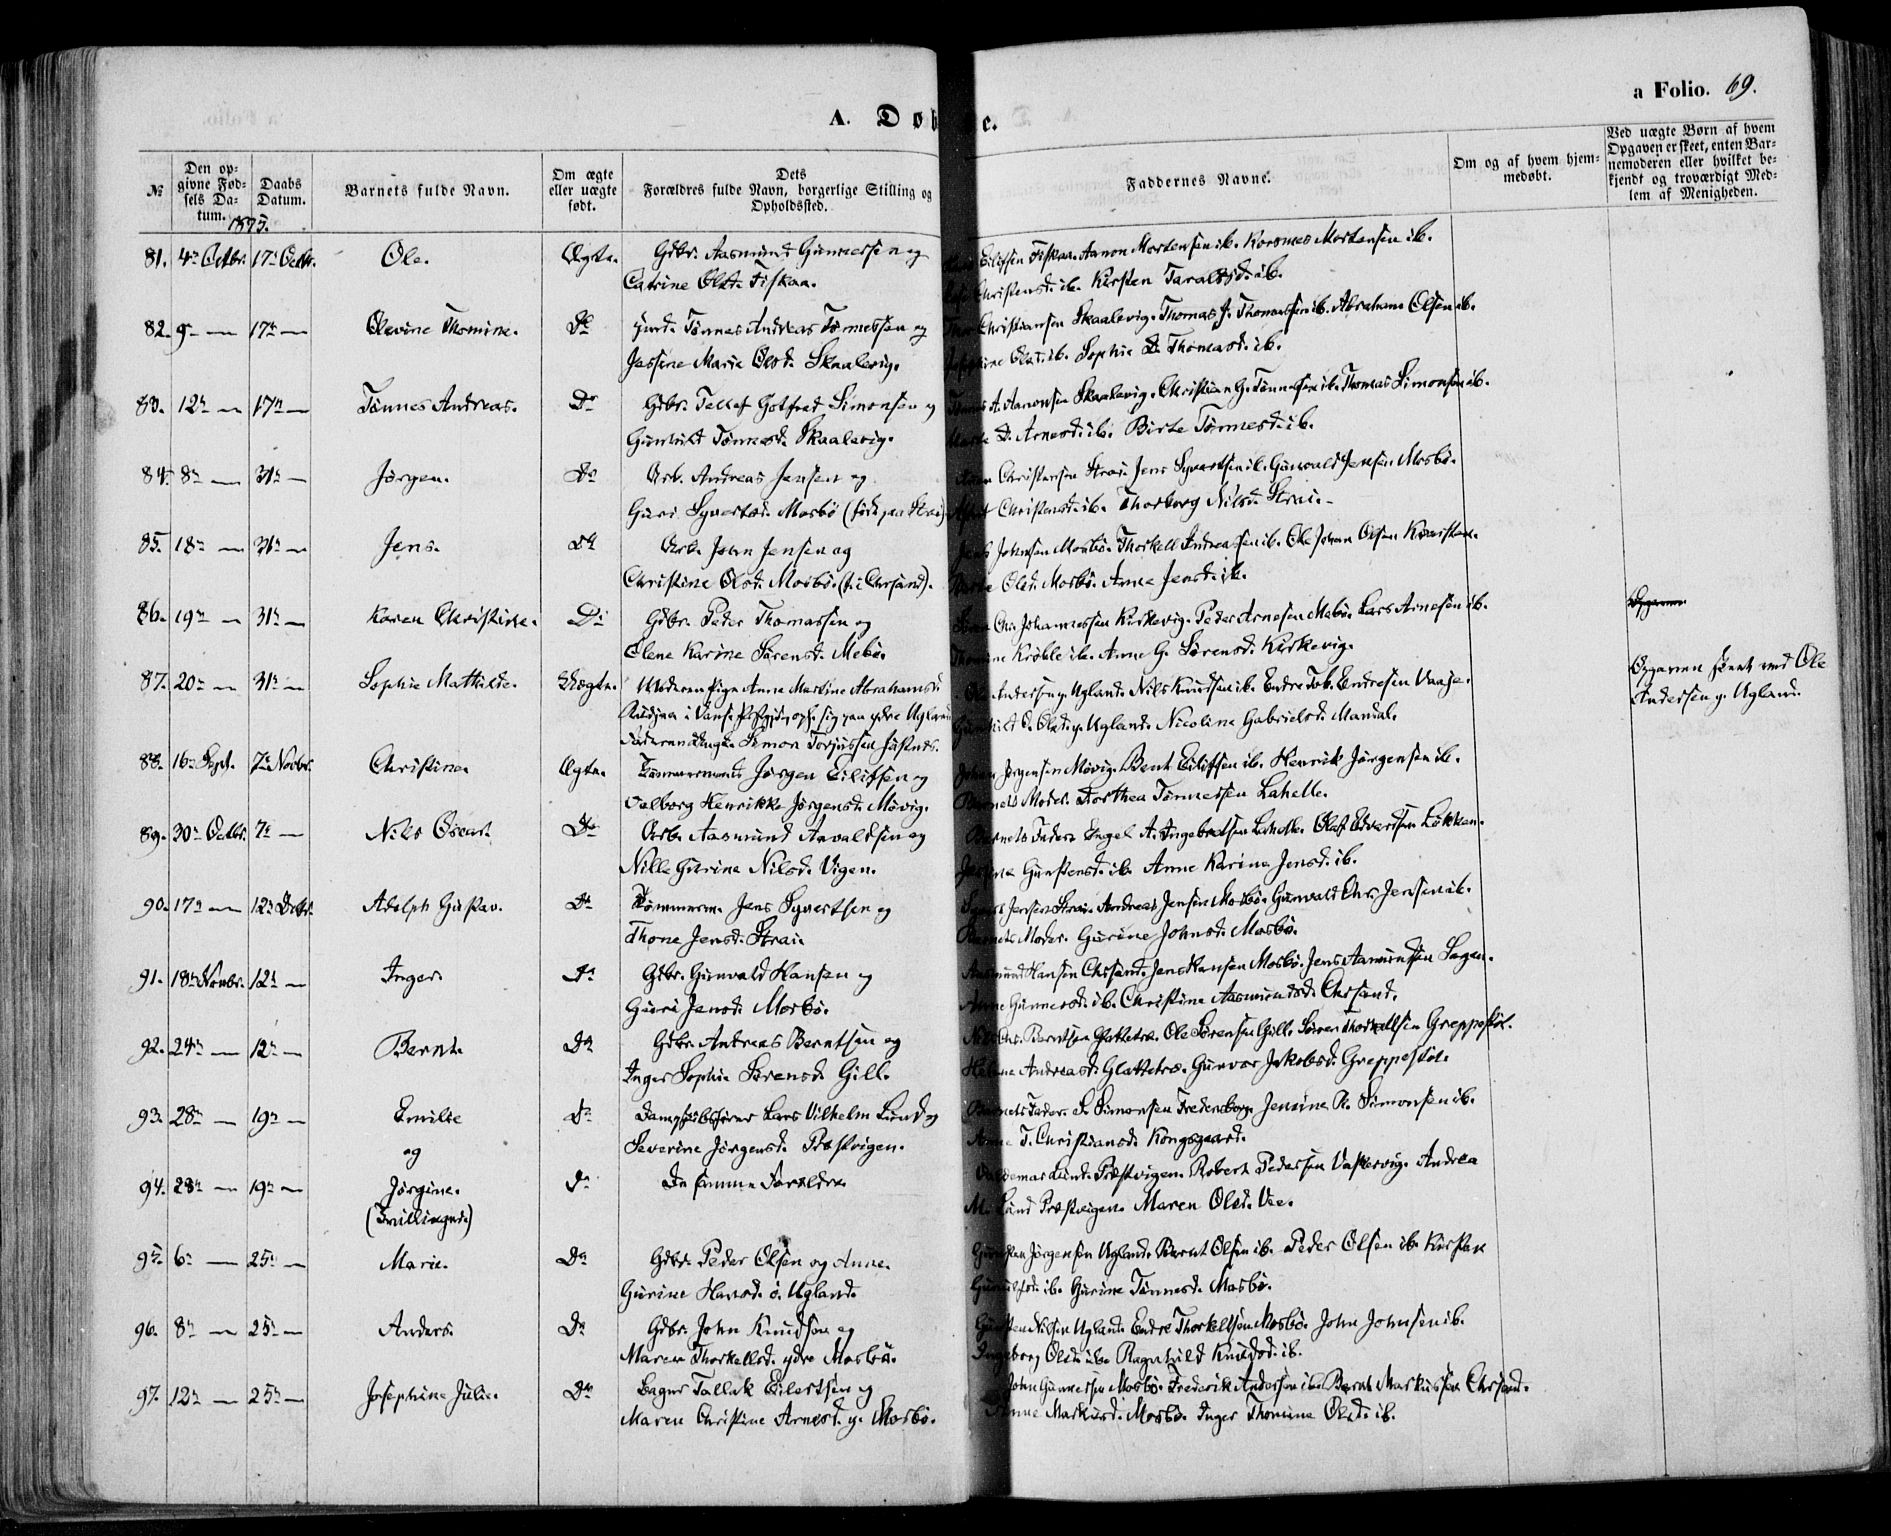 A. Døbte.
a Folio. 69.
№
Den opgivne Fødsels Datum.
Daabs Datum.
Barnets fulde Navn.
Om ægte eller uægte født.
Dets Forældres fulde Navn, borgerlige Stilling og Opholdssted.
Faddernes Navne.
Om og af hvem hjemmedøbt.
Ved uægte Børn af hvem Opgaven er skeet, enten Barnemoderen eller hvilket bekjendt og troværdigt Medlem af Menigheden.
1875.
81. 4de Octbr. 17de Octbr. Ole. Ægte. Gdbr. Aasmund Gunnersen og Eilifsen Fiskaa. Aanon Mortensen ib. Rasmus Mortensen ib.
Catrine Olsd. Fiskaa. Christensd. ib. Kirsten Taraldsd. ib.
82. 9de — 17de — Olevine Thomine. Do Tønnes Andreas Tønnessen og Christiansen Skaalevig. Thomas J. Thomassen ib. Abraham Olsen ib.
Jessine Marie Olsd. Skaalevig. Olsd. ib. Sophie Thomasd. ib.
83. 12te — 17de — Tønnes Andreas. Do Gdbr. Tellef Gotfred Simonsen og Tønnes A. Aanonsen Skaalevig. Christian G. Tønnesen ib. Thomas Simonsen ib.
Gunhild Tønnesd. Skaalevig. Arnesd. ib. Birte Tønnesd. ib.
84. 8de — 31te — Jørgen. Do Arb. Andreas Jensen og Christensen Strai. Jens Syvertsen ib. Gunvald Jensen Mosbø.
Guri Syvertsd. Mosbø (født paa Strai) Christensd. ib. Thorborg Nilsd. Strai.
85. 18de — 31te — Jens. Do Arb. John Jensen og Johnsen Mosbø. Thorkell Andreassen ib. Ole Johan Olsen
Christine Olsd. Mosbø. (f. i Chrsand). Olsd. Mosbø. Anne Jensd. ib.
86. 19de — 31te — Karen Christine. Do Gdbr. Peder Thomassen og Chr. Johannessen Kirkevig. Peder Arnesen Mebø. Lars Arnesen ib.
Olene Karine Sørensd. Mebø. Krøhle ib. Anne G. Sørensd. Kirkevig.
87. 20de — 31te — Sophie Mathilde. Uægte. Moderen Pige Anne Martine Abrahamsd. Ole Andersen y. Ugland. Nils Knudsen ib. Endre Tob. Endresen Vaaje. Opgaven skeet ved Ole
i Vanse Pstgjd oph. sig paa ydre Ugland Olsd. y. Ugland. Nicoline Gabrielsd. Mandal. Andersen y. Ugland.
Simon Torjussen
88. 16de Sept. 7de Novbr. Christine. Ægte. Tømmermand Jørgen Eilifsen og Johan Jørgensen Møvig. Bent Eilifsen ib. Henrik Jørgensen ib.
Valborg Henrikke Jørgensd. Møvig. Barnets Moder. Dorthea Tønnessen Lahelle.
89. 30te Octbr. 7de — Nils Oscar. Do Arb. Aasmund Aavaldsen og Barnets Fader. Engel A. Ingebretsen Lahelle. Olaf Edvardsen Løkken.
Nille Gurine Nilsd. Vigen. Gunstensd. ib. Anne Karine Jensd. ib.
90. 17de — 12te Decbr. Adolph Gustav. Do Tømmerm. Jens Syvertsen og Syvert Jensen Strai. Andreas Jensen Mosbø. Gunvald Chr. Jensen ib.
Thone Jensd. Strai. Barnets Moder. Gurine Johnsd. Mosbø.
91. 18de Novbr. 12te — Inger. Do Gdbr. Gunvald Hansen og Aasmund Hansen Chrsand. Jens Hansen Mosbø. Jens Aamundsen Sagen.
Guri Jensd. Mosbø. Anne Gunnersd. ib. Christine Aasmundsd. Chrsand.
92. 24de — 12te — Bernt. Do Gdbr. Andreas Berntsen og Berntsen Glattetre. Ole Sørensen Gill. Søren Thorkellsen Greppestøl.
Inger Sophie Sørensd. Gill. Helene Andreasd. Glattetre. Gunvor Jakobsd. Greppestøl.
93. 28de — 19de — Emilie Do Dampskibsfører Lars Vilhelm Lund og Barnets Fader. S. Simonsen Fredensborg. Jensine R. Simonsen ib.
og Severine Jørgensd. Præstvigen. Anne T. Christiansd. Kongsgaard.
94. 28de — 19de — Jørgine. Do De samme Forældre Valdemar Lund Præstvigen. Robert Pedersen Vaskervig. Andrea
(Tvillinger) M. Lund Præstvigen. Maren Olsd. Vee.
95. 6te — 25de — Marie. Do Gdbr. Peder Olsen og Anne Jørgensen Ugland. Bernt Olsen ib. Peder Olsen ib. Kirsten
Gurine Hansd. ø. Ugland. ib. Gurine Tønnesd. Mosbø.
96. 8de — 25de — Anders. Do Gdbr. John Knudsen og Nilsen Ugland. Endre Thorkellsen Mosbø. John Johnsen ib.
Maren Thorkellsd. ydre Mosbø. Ingeborg Olsd. ib. Ragnhild Knudsd. ib.
97. 12te — 25de — Josephine Julie. Do Bager Tallak Eilertsen og John Gunnersen Mosbø. Frederik Andersen ib. Bernt Markussen Chrsand.
Maren Christine Arnesd. y. Mosbø. Anne Markusd. Mosbø. Inger Thomine Olsd. ib.